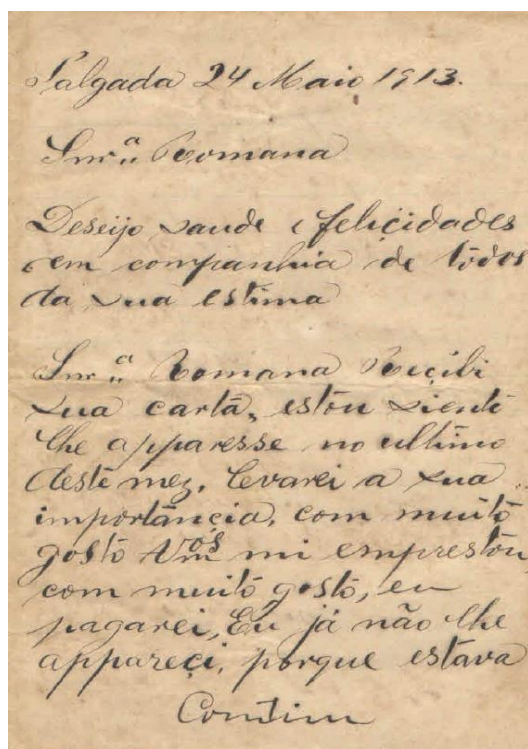 Salgada 24 Maio 1913.
Snr.ª Romana
Deseijo saude e felicidades
em companhia de todos
da sua estima
Snr.ª Romana Reçibi
sua carta, estou siente
lhe apparesse no ultimo
deste mez, levarei a sua
importância, com muito
gosto mi emprestou,
com muito gosto, eu
pagarei, Eu já não lhe
appareçi, porque estava